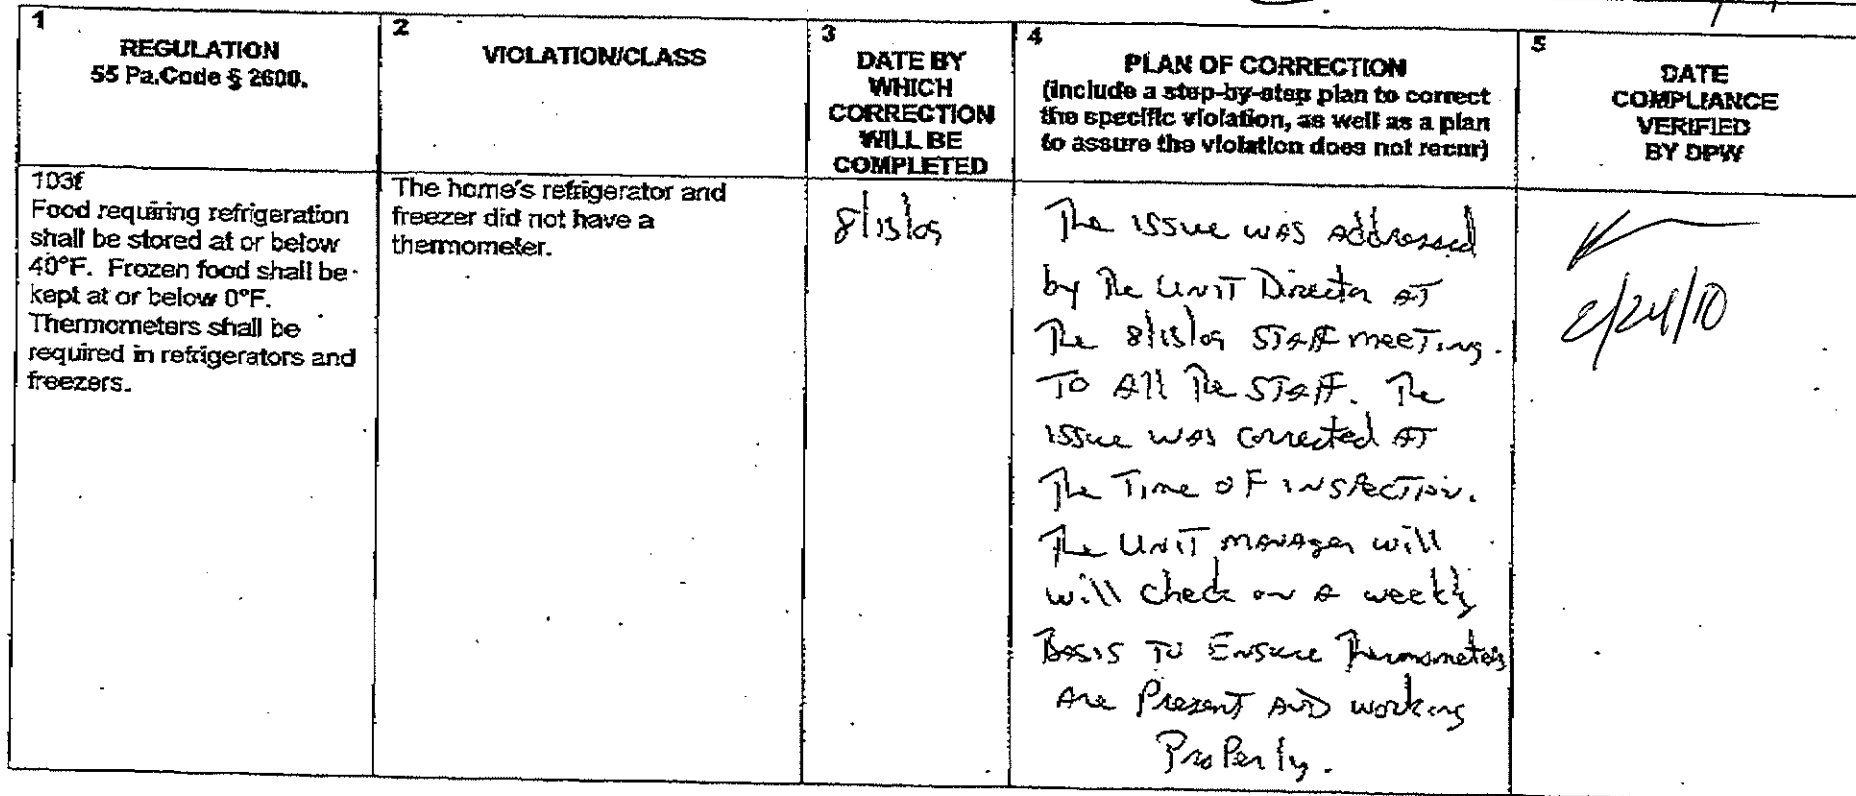 1
REGULATION
55 Pa.Code § 2600.
2
VIOLATION/CLASS
3
DATE BY
WHICH
CORRECTION
WILL BE
COMPLETED
4
PLAN OF CORRECTION
(include a step-by-step plan to correct
the specific violation, as well as a plan
to assure the violation does not recur)
5
DATE
COMPLIANCE
VERIFIED
BY DPW
103f
Food requiring refrigeration
shall be stored at or below
40°F. Frozen food shall be
kept at or below 0°F.
Thermometers shall be
required in refrigerators and
freezers.
The home's refrigerator and
freezer did not have a
thermometer.
8/13/09
The issue was addressed
by The Unit Director AT
The STAFF meeting.
To All The STAFF. The
issue was corrected AT
The Time of inspection.
The Unit manager will
will check on a weekly
Basis To Ensure Thermometers
Are Present AND working
Properly.
2/24/10